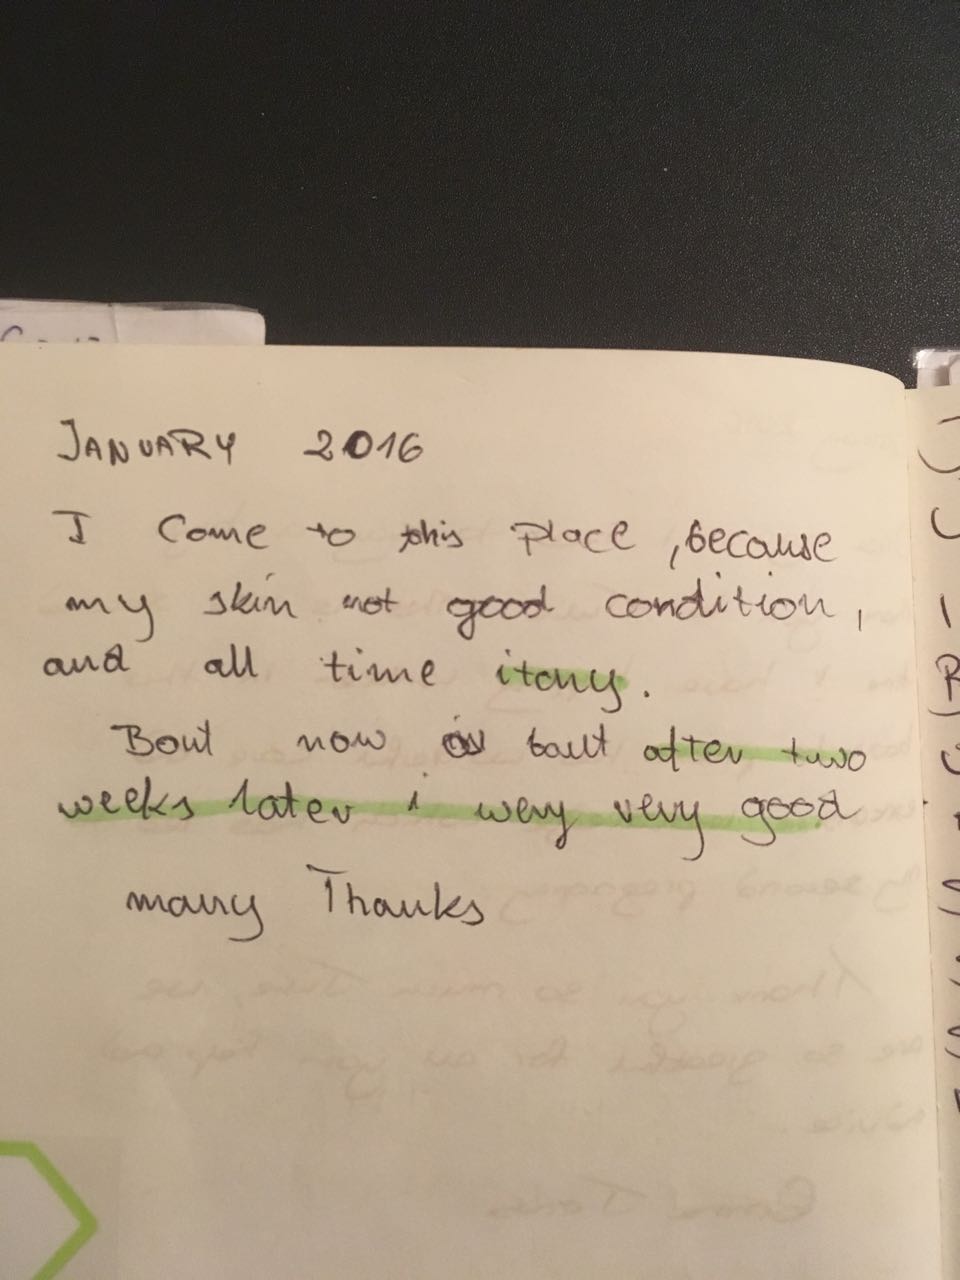 JANUARY 2016
I Come to this Place, because
my skin not good condition,
and all time itchy.
Bout now bout after two
weeks later i wery very good
many Thanks